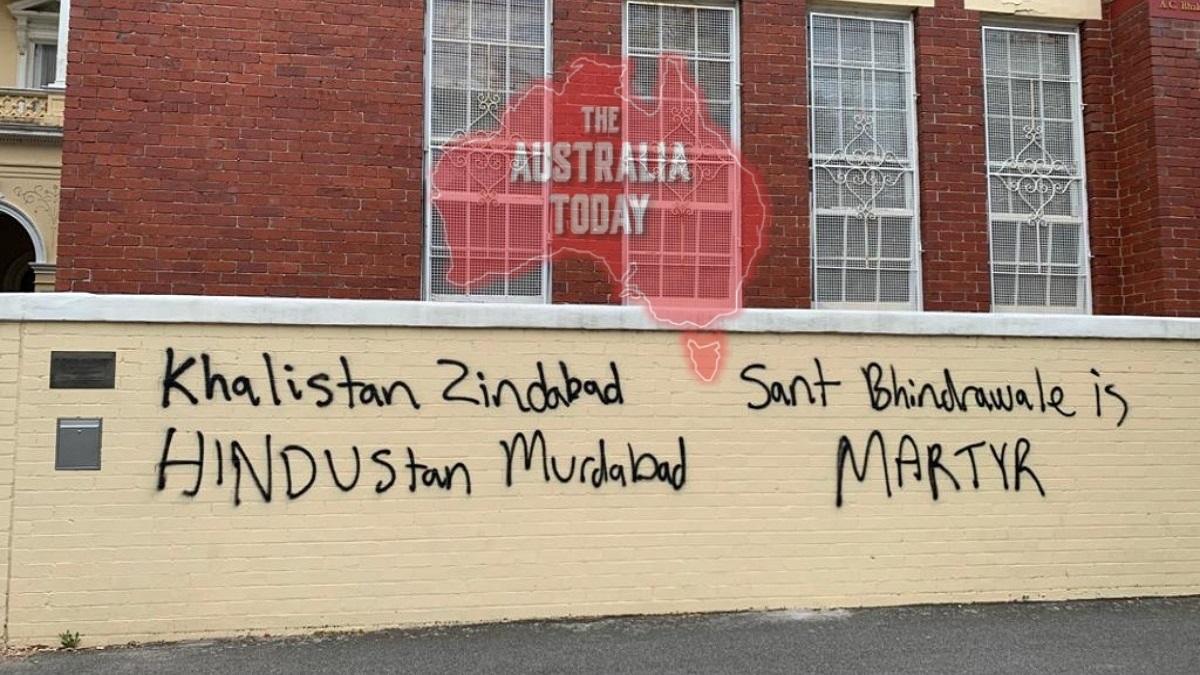 A.C. Bhak
THE
AUSTRALIA
TODAY
Khalistan Zindabad
HINDUStan Murdabad
Sant Bhindrawale is
MARTYR